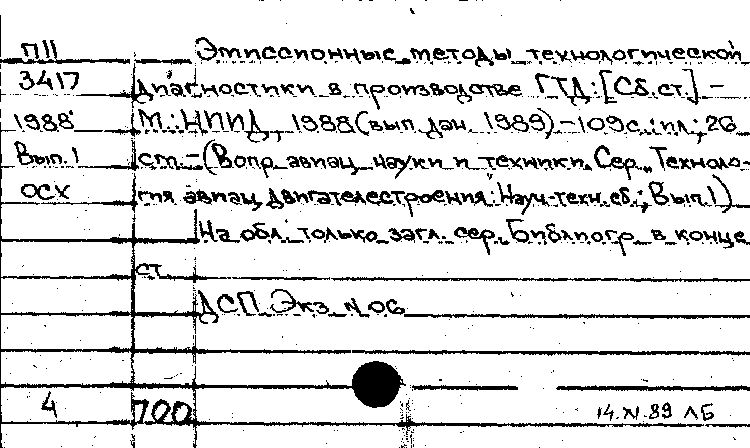 П11 Эмиссионные методы технологической
3417 диагностики в производстве ГТД: [Сб. ст.] –
1988 М.: НИИД, 1988 (вып. дан. 1989) – 109 с.: ил.; 26
Вып. 1 см. – (Вопр. авиац. науки и техники. Сер. Техноло-
ОСХ гия авиац. двигателестроения: Науч.-техн. сб.; Вып. 1)
На обл. только загл. сер. Библиогр. в конце
ст.
ДСП Экз. N 06
4 700 14.XI.89 ЛБ